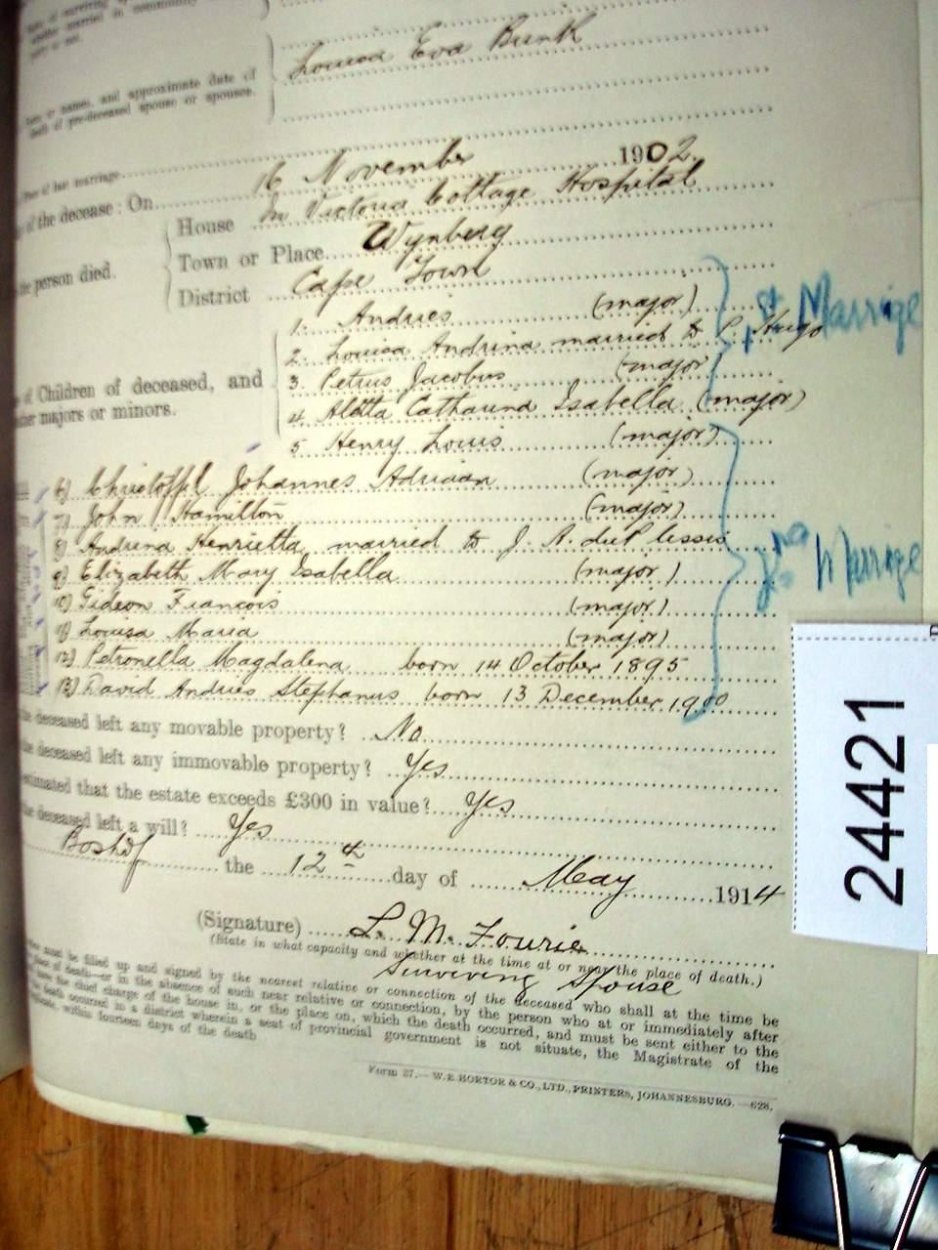 Louisa Eva Bunk
and approximate date of
of pre-deceased spouse or spouses.
of the decease: On 16 November 1902.
House In Victoria Cottage Hospital
person died. Town or Place Wynberg
District Cape Town
1. Andries (major) 1st Marrige
2. Louisa Andrina married to P. Hugo
of Children of deceased, and 3. Petrus Jacobus (major)
majors or minors. 4. Aletta Catharina Isabella (major)
5 Henry Louis (major)
6) Christoffel Johannes Adriaan (major)
7) John Hamilton (major)
8) Andrina Henrietta married to J. A. du Plessis
9) Elizabeth Mary Isabella (major) 2nd Marrige
10) Gideon Francois (major)
11) Louisa Maria (major)
12) Petronella Magdalena born 14 October 1895
13) David Andries Stephanus born 13 December 1900
deceased left any movable property? No
deceased left any immovable property? Yes
estimated that the estate exceeds £300 in value? Yes
deceased left a will? Yes
Boshof the 12th day of May 1914
(Signature) L. M. Fourie
(State in what capacity and whether at the time at or near the place of death.)
Surviving Spouse
must be filled up and signed by the nearest relative or connection of the deceased who shall at the time be
place of death—or in the absence of such near relative or connection, by the person who at or immediately after
the chief charge of the house in, or the place on, which the death occurred, and must be sent either to the
death occurred in a district wherein a seat of provincial government is not situate, the Magistrate of the
within fourteen days of the death
Form 27.—W. E. HORTOR & CO., LTD., PRINTERS, JOHANNESBURG.—628.
24421